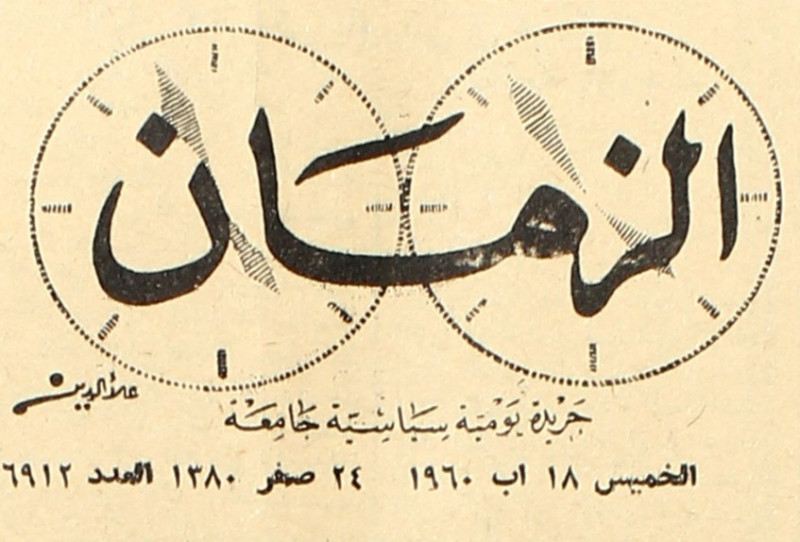 الزمان
علاء الدين
جَرِيْدة يَوْميَة سِيَاسْيّة جَامِعَة
الخميس ١٨ اب ١٩٦٠ ٢٤ صفر ١٣٨٠ العدد ٦٩١٢